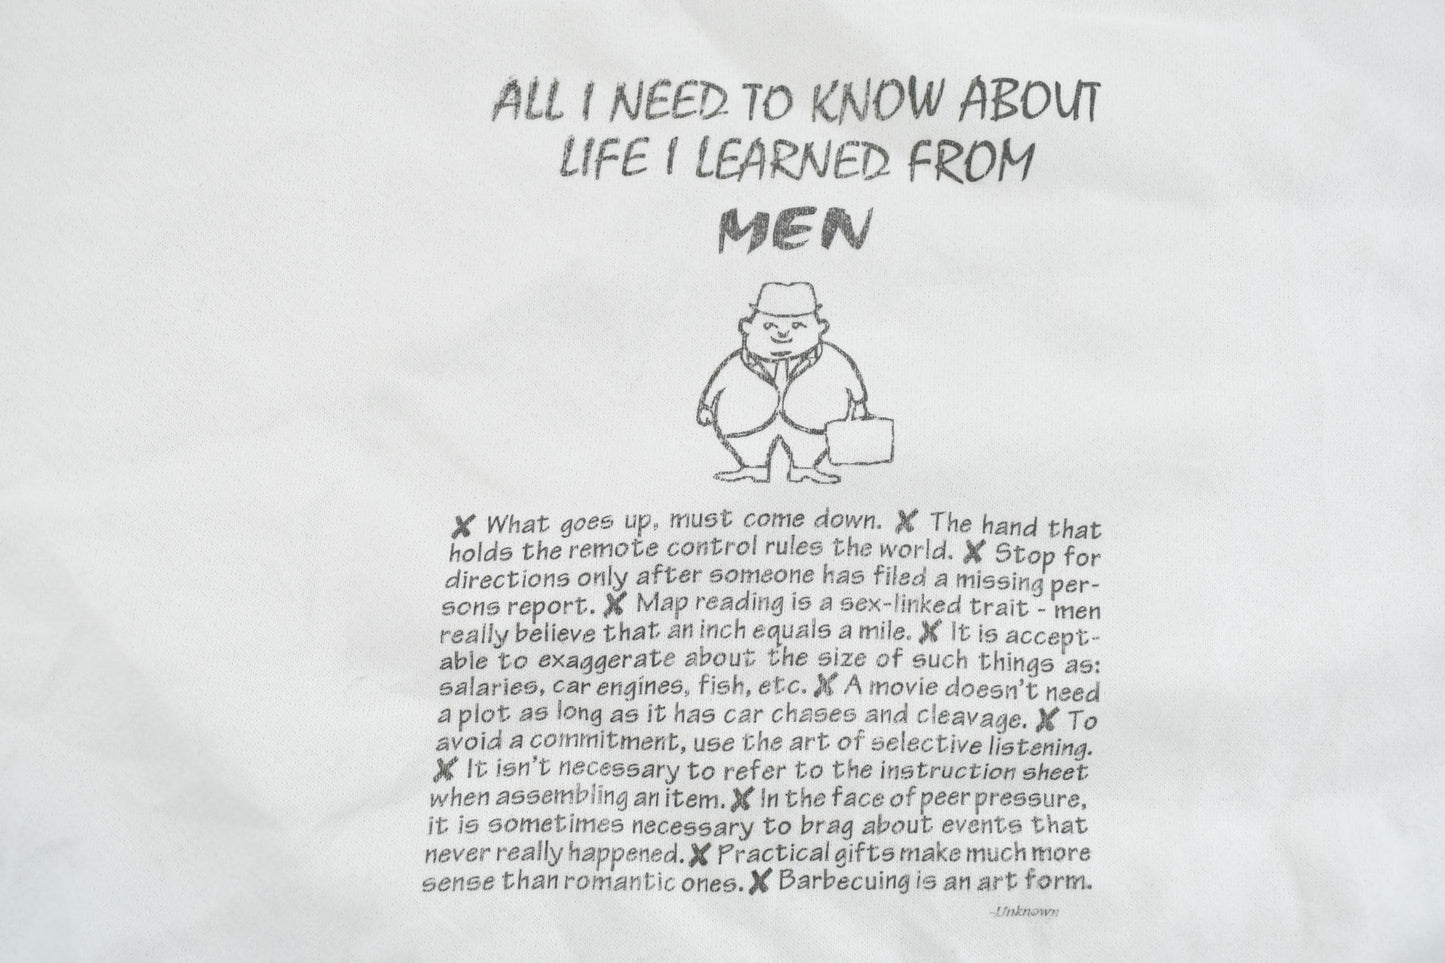 ALL I NEED TO KNOW ABOUT
LIFE I LEARNED FROM
MEN
✘ What goes up, must come down. ✘ The hand that
holds the remote control rules the world. ✘ Stop for
directions only after someone has filed a missing per-
sons report. ✘ Map reading is a sex-linked trait - men
really believe that an inch equals a mile. ✘ It is accept-
able to exaggerate about the size of such things as:
salaries, car engines, fish, etc. ✘ A movie doesn't need
a plot as long as it has car chases and cleavage. ✘ To
avoid a commitment, use the art of selective listening.
✘ It isn't necessary to refer to the instruction sheet
when assembling an item. ✘ In the face of peer pressure,
it is sometimes necessary to brag about events that
never really happened. ✘ Practical gifts make much more
sense than romantic ones. ✘ Barbecuing is an art form.
-Unknown